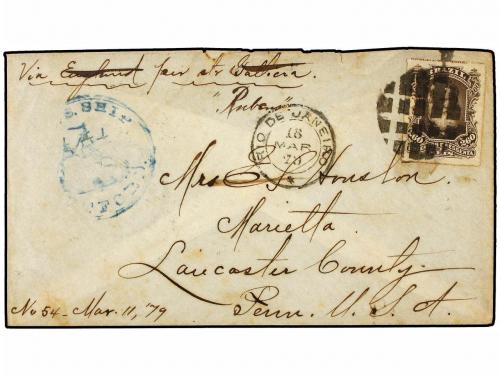 Via England per str Galicia.
"Rubens"
U.S. SHIP
RIO DE JANEIRO
18
MAR
BRAZIL
200
Mrs S Houston
Marietta
Lancaster County
Penn. U.S.A.
No 54 - Mar. 11, '79